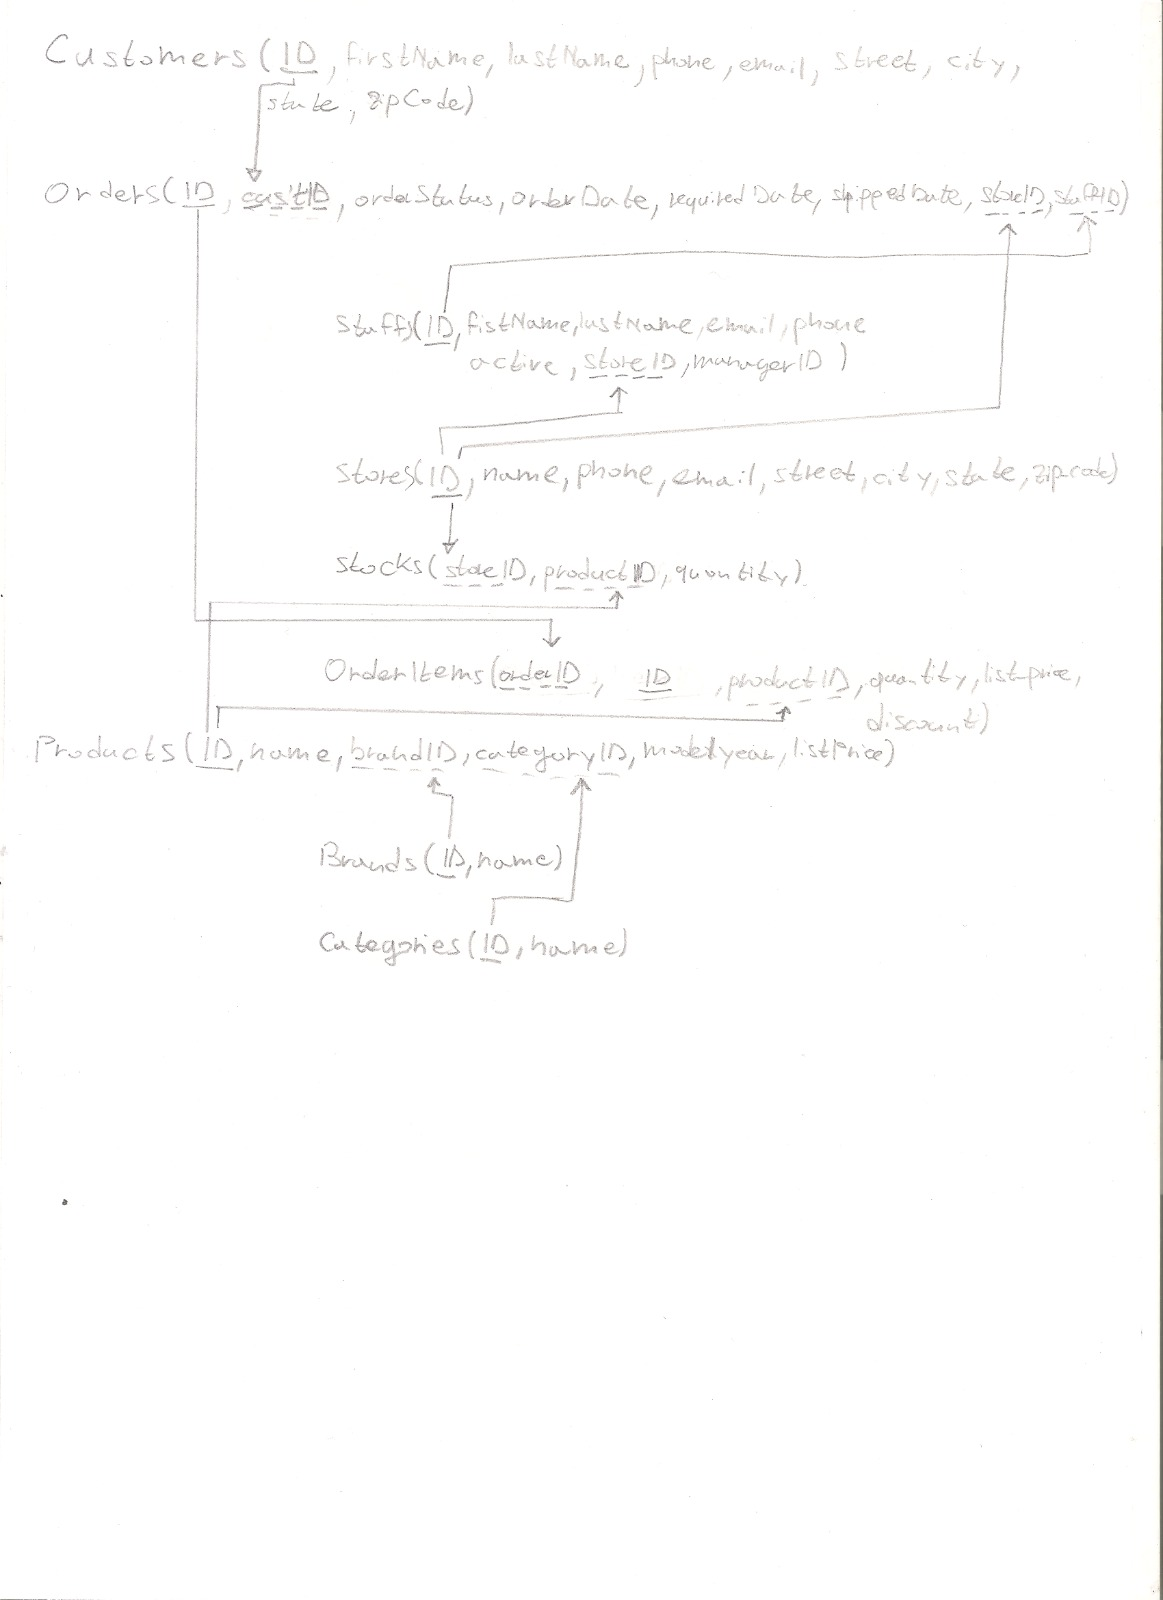 Customers (ID, firstName, lastName, phone, email, street, city,
state, zipCode)
Orders(ID, custID, orderStatus, orderDate, requiredDate, shippedDate, storeID, staffID)
Staffs(ID, fistName, lastName, email, phone
active, storeID, managerID)
Stores(ID, name, phone, email, street, city, state, zip-code)
Stocks(storeID, productID, quantity)
OrderItems(orderID, ID, productID, quantity, list-price,
discount)
Products(ID, name, brandID, categoryID, modelyear, listPrice)
Brands(ID, name)
Categories(ID, name)